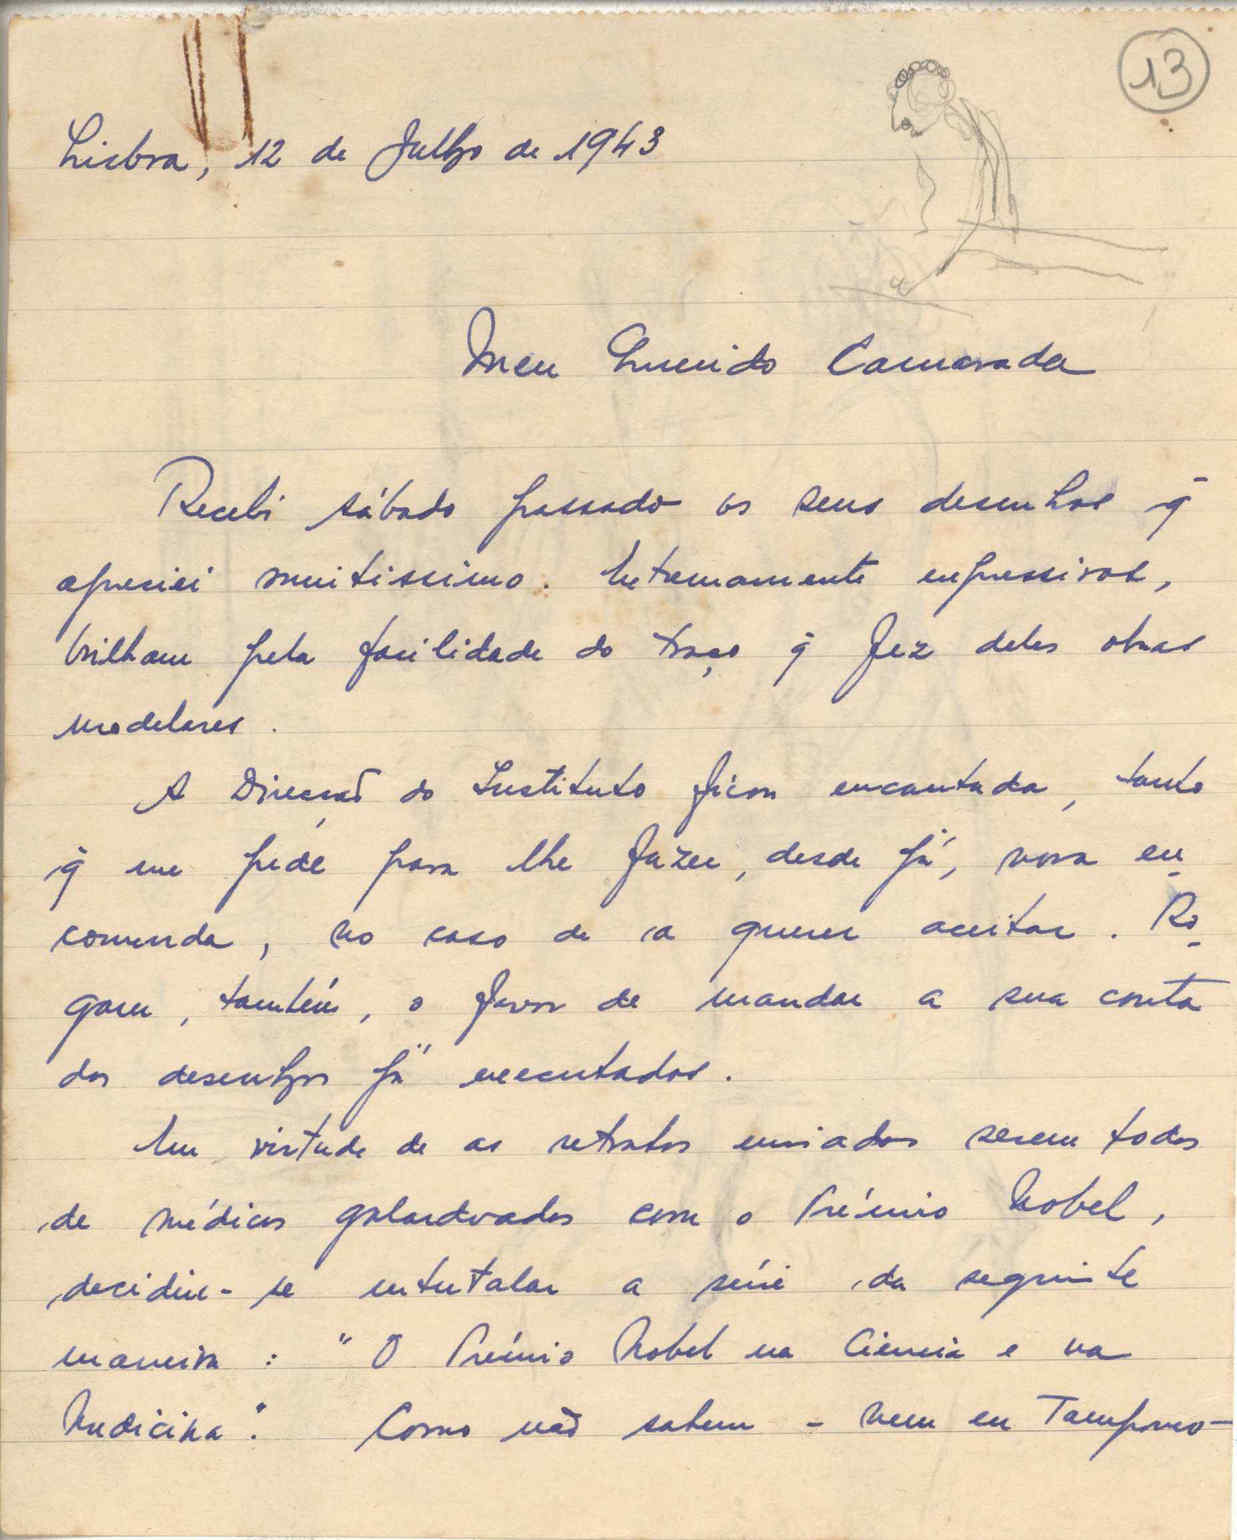 13
Lisboa, 12 de Julho de 1943
Meu Querido Camarada
Recebi sábado passado os seus desenhos q̄
apreciei muitissimo. Extremamente expressivos,
brilham pela facilidade do traço q̄ fez deles obras
modelares.
A Direcção do Instituto ficou encantada, tanto
q̄ me pede para lhe fazer, desde já, nova en-
comenda, no caso de a querer aceitar. Ro-
gam, também, o favor de mandar a sua conta
dos desenhos já executados.
Em virtude de os retratos enviados serem todos
de médicos galardoados com o Prémio Nobel,
decidiu-se intutalar a série da seguinte
maneira: "O Prémio Nobel na Ciencia e na
Medicina". Como não sabem - nem eu Tampouco -